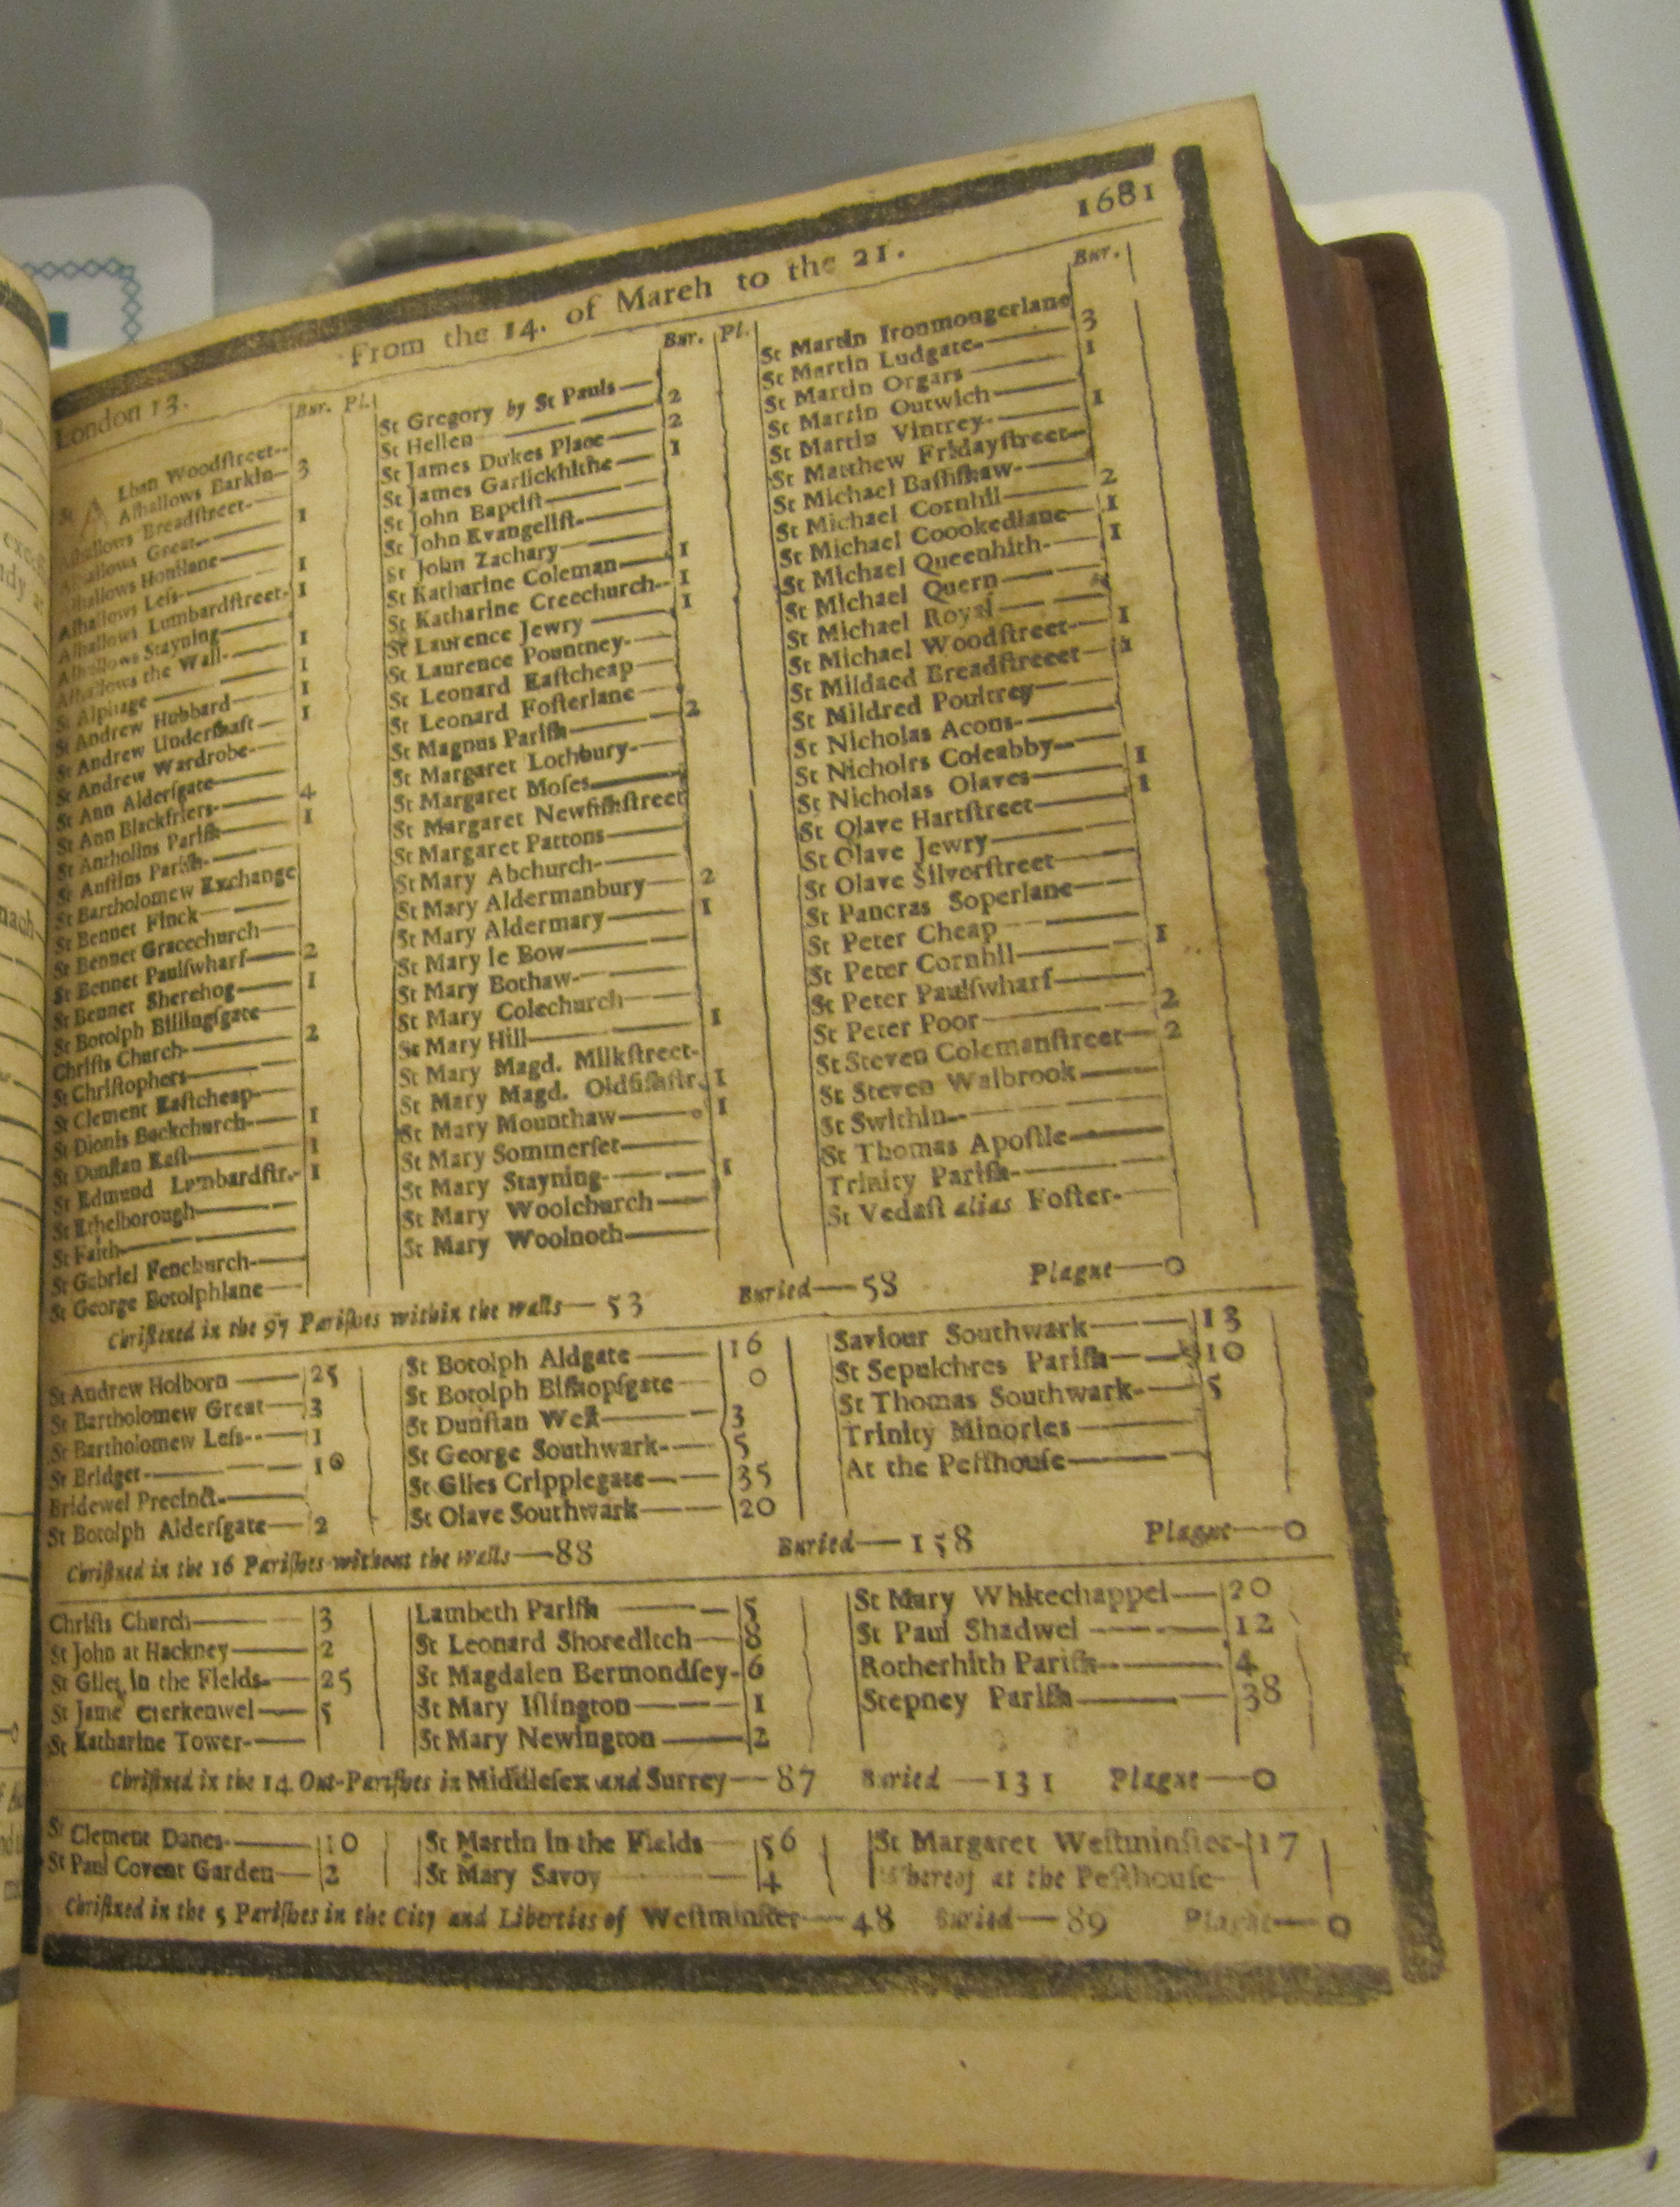 1681
London 13.
From the 14. of March to the 21.
Bur. Pl.
St Alban Woodſtreet
Alhallows Barkin 3
Alhallows Breadſtreet
Alhallows Great 1
Alhallows Honilane
Alhallows Leſs 1
Alhallows Lumbardſtreet 1
Alhallows Stayning
Alhallows the Wall 1
St Alphage 1
St Andrew Hubbard 1
St Andrew Underſhaft 1
St Andrew Wardrobe
St Ann Alderſgate
St Ann Blackfriers 4
St Antholins Pariſh 1
St Auſtins Pariſh
St Bartholomew Exchange
St Bennet Finck
St Bennet Gracechurch
St Bennet Paulſwharf 2
St Bennet Sherehog 1
St Botolph Billingſgate
Chriſts Church 2
St Chriſtophers
St Clement Eaſtcheap
St Dionis Backchurch 1
St Dunſtan Eaſt 1
St Edmund Lumbardſtr. 1
St Ethelborough
St Faith
St Gabriel Fenchurch
St George Botolphlane
Bur. Pl.
St Gregory by St Pauls
St Hellen 2
St James Dukes Place 2
St James Garlickhithe 1
St John Baptiſt
St John Evangeliſt
St John Zachary
St Katharine Coleman 1
St Katharine Creechurch 1
St Laurence Jewry 1
St Laurence Pountney
St Leonard Eaſtcheap
St Leonard Foſterlane
St Magnus Pariſh 2
St Margaret Lothbury
St Margaret Moſes
St Margaret Newfiſhſtreet
St Margaret Pattons
St Mary Abchurch
St Mary Aldermanbury 2
St Mary Aldermary 1
St Mary le Bow
St Mary Bothaw
St Mary Colechurch
St Mary Hill 1
St Mary Magd. Milkſtreet
St Mary Magd. Oldfiſhſtr. 1
St Mary Mounthaw 1
St Mary Sommerſet
St Mary Stayning 1
St Mary Woolchurch
St Mary Woolnoth
Bur.
St Martin Ironmongerlane
St Martin Ludgate 3
St Martin Orgars 1
St Martin Outwich
St Martin Vintrey 1
St Matthew Fridayſtreet
St Michael Baſſiſhaw
St Michael Cornhil 2
St Michael Coookedlane 1
St Michael Queenhith 1
St Michael Quern
St Michael Royal
St Michael Woodſtreet 1
St Mildaed Breadſtreeet 1
St Mildred Poultrey
St Nicholas Acons
St Nicholrs Coleabby
St Nicholas Olaves 1
St Olave Hartſtreet 1
St Olave Jewry
St Olave Silverſtreet
St Pancras Soperlane
St Peter Cheap
St Peter Cornhil 1
St Peter Paulſwharf
St Peter Poor 2
St Steven Colemanſtreet 2
St Steven Walbrook
St Swithin
St Thomas Apoſtle
Trinity Pariſh
St Vedaſt alias Foſter
Chriſtned in the 97 Pariſhes within the walls 53 Buried 58 Plague 0
St Andrew Holborn 25
St Bartholomew Great 3
St Bartholomew Leſs 1
St Bridget 10
Bridewel Precinct
St Botolph Alderſgate 2
St Botolph Aldgate 16
St Botolph Biſhopſgate 0
St Dunſtan Weſt 3
St George Southwark 5
St Giles Cripplegate 35
St Olave Southwark 20
Saviour Southwark 13
St Sepulchres Pariſh 10
St Thomas Southwark 5
Trinity Minories
At the Peſthouſe
Chriſtned in the 16 Pariſhes without the walls 88 Buried 158 Plague 0
Chriſts Church 3
St John at Hackney 2
St Giles in the Fields 25
St Jame Clerkenwel 5
St Katharine Tower
Lambeth Pariſh 5
St Leonard Shoreditch 8
St Magdalen Bermondſey 6
St Mary Iſlington 1
St Mary Newington 2
St Mary Whitechappel 20
St Paul Shadwel 12
Rotherhith Pariſh 4
Stepney Pariſh 38
Chriſtned in the 14 Out-Pariſhes in Middleſex and Surrey 87 Buried 131 Plague 0
St Clement Danes 10
St Paul Covent Garden 2
St Martin in the Fields 56
St Mary Savoy 4
St Margaret Weſtminſter 17
Whereof at the Peſthouſe
Chriſtned in the 5 Pariſhes in the City and Liberties of Weſtminſter 48 Buried 89 Plague 0